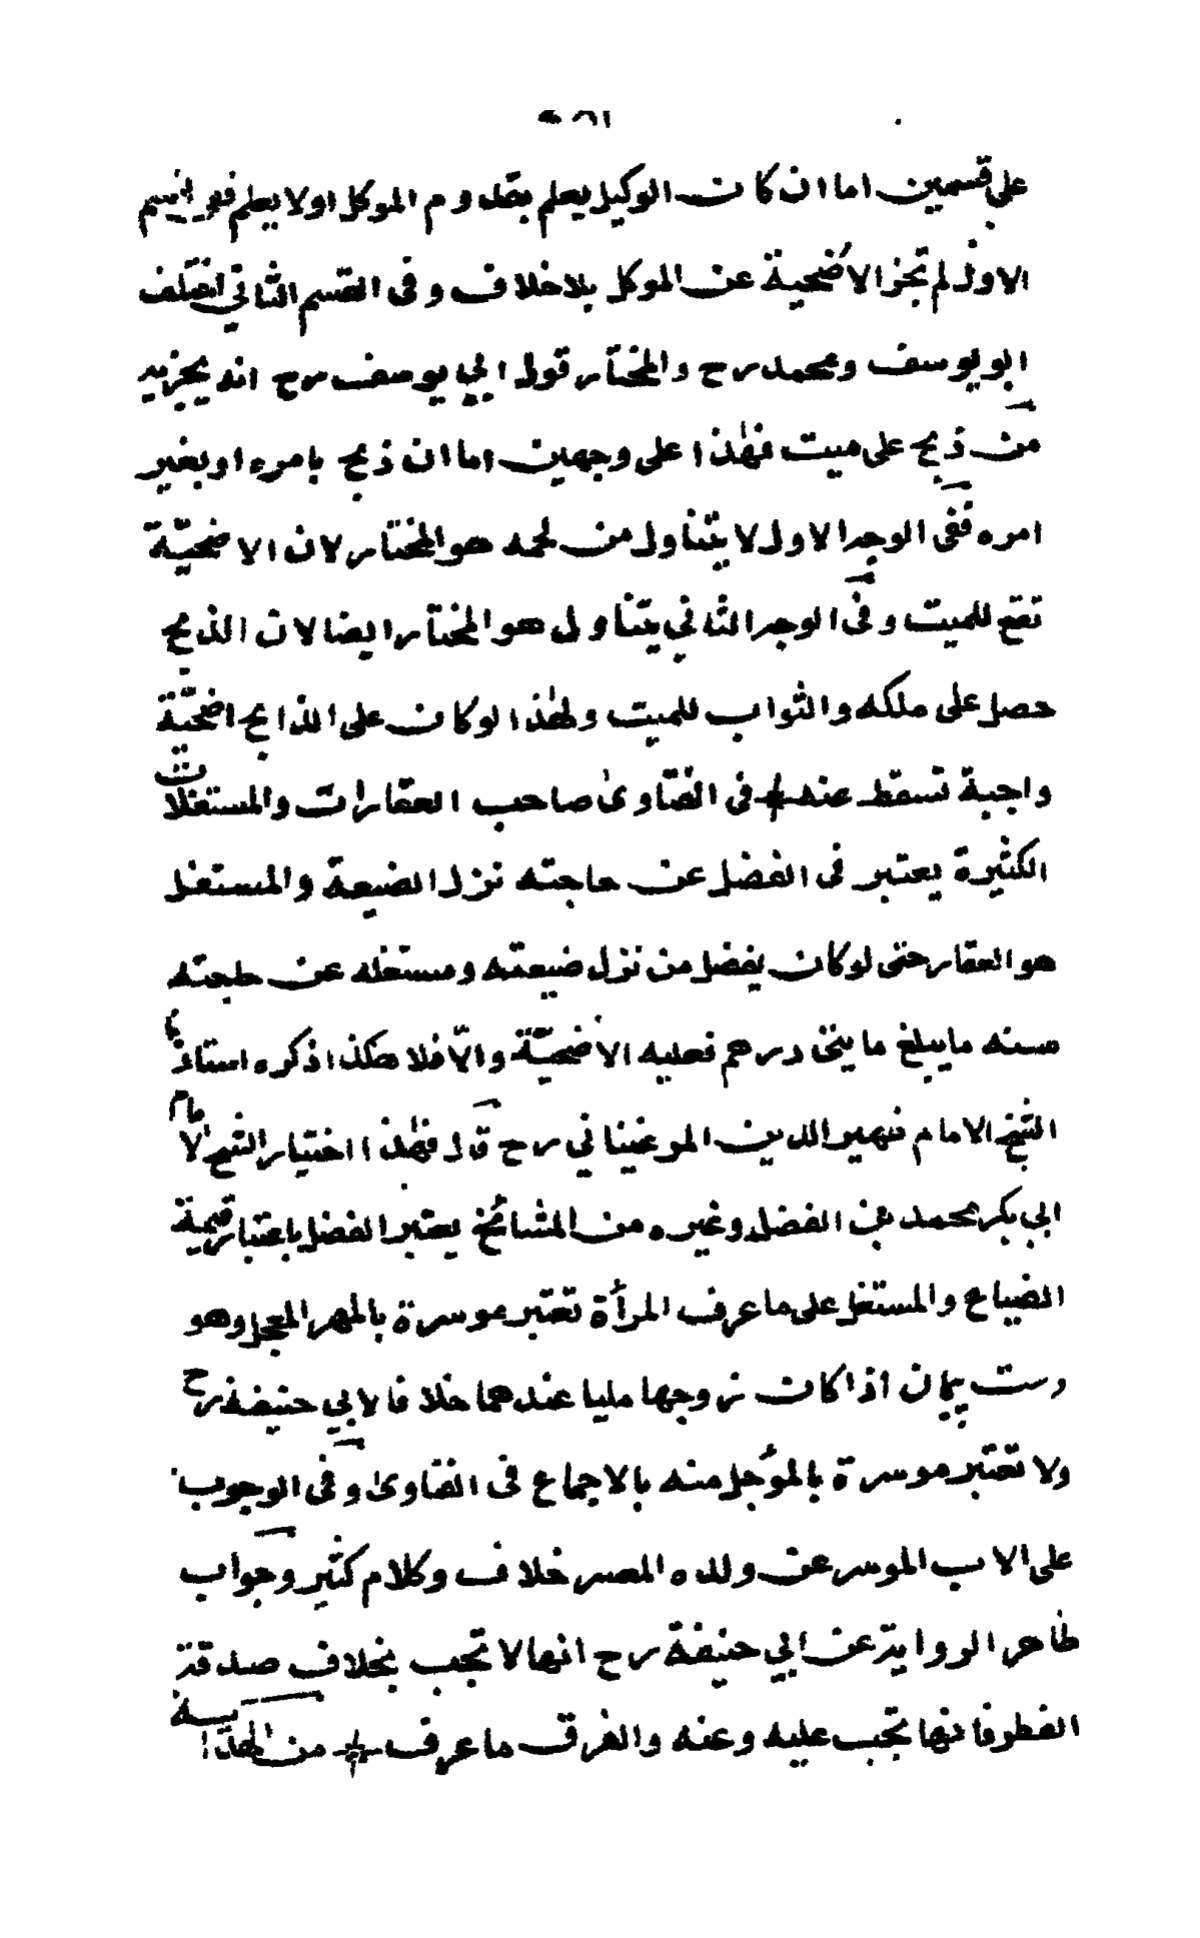 علي قسمين اما ان كان الوكيل يعلم بقدوم الموكل اولا يعلم ففي القسم
الاول لم تجز الاضحية عن الموكل بلا خلاف وفى القسم الثاني اختلف
ابو يوسف ومحمد رح والمختار قول ابي يوسف رح انه يجزيه
من ذبح على ميت فهٰذا على وجهين اما ان ذبح بامره او بغير
امره ففى الوجه الاول لا يتناول من لحمه هو المختار لان الاضحيّة
تقع للميت وفى الوجه الثاني يتناول هو المختار ايضا لان الذبح
حصل على ملكه والثواب للميت ولهٰذا لو كان على الذابح اضحيّة
واجبة تسقط عنه فى الفتاوىٰ صاحب العقارات والمستغلات
الكثيرة يعتبر فى الفضل عن حاجته نزل الضيعة والمستغل
هو العقار حتى لو كان يفضل من نزل ضيعته ومستغله عن حاجته
سنه ما يبلغ مايتى درهم فعليه الاضحيّة والّا فلا هكذا ذكره استاذنا
الشيخ الامام ظهير الدين المرغيناني رح قال فهٰذا اختيار الشيخ الامام
ابي بكر محمد بن الفضل وغيره من المشائخ يعتبر الفضل باعتبار قيمة
الضياع والمستغل على ما عرف المرأة تعتبر موسرة بالمهر المعجل وهو
دست پيمان اذا كان زوجها مليا عندهما خلافا لابي حنيفة رح
ولا تعتبر موسرة بالمؤجل منه بالاجماع فى الفتاوىٰ وفى الوجوب
على الاب الموسر عن ولده المصر خلاف وكلام كثير وجواب
ظاهر الرواية عن ابي حنيفة رح انها لا تجب بخلاف صدقة
الفطر فانها تجب عليه وعنه والفرق ما عرف من الهداية